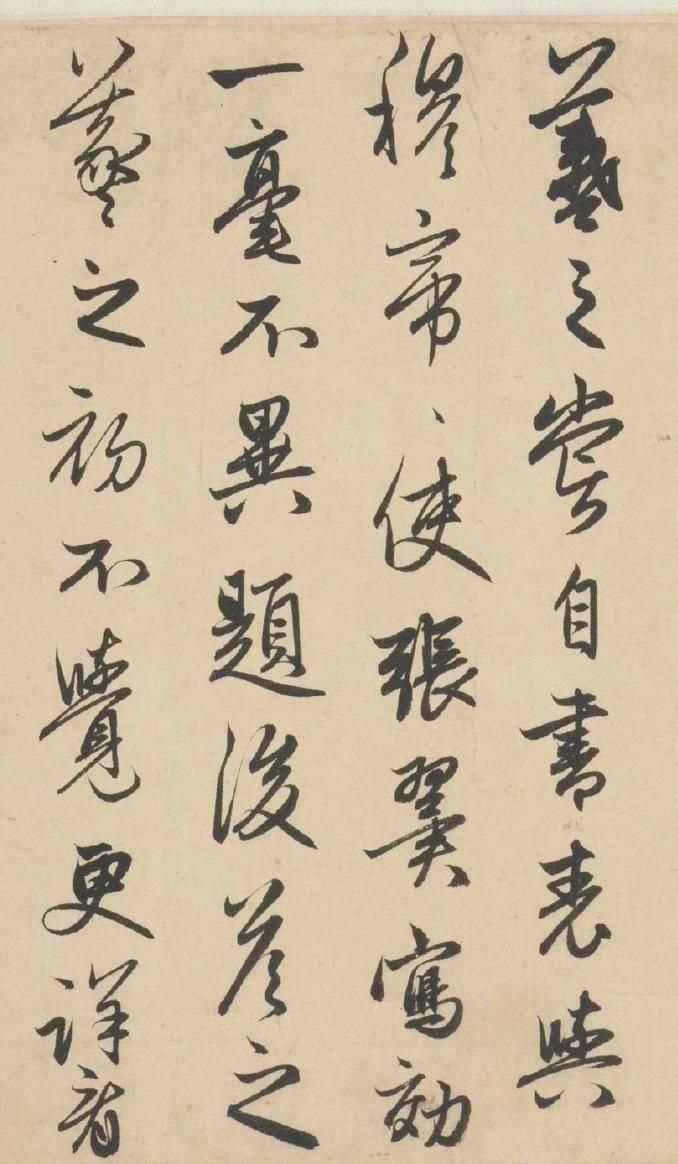 羲之嘗自書表與
穆帝、使張翼寫効
一毫不異題後答之
羲之初不覺更詳看